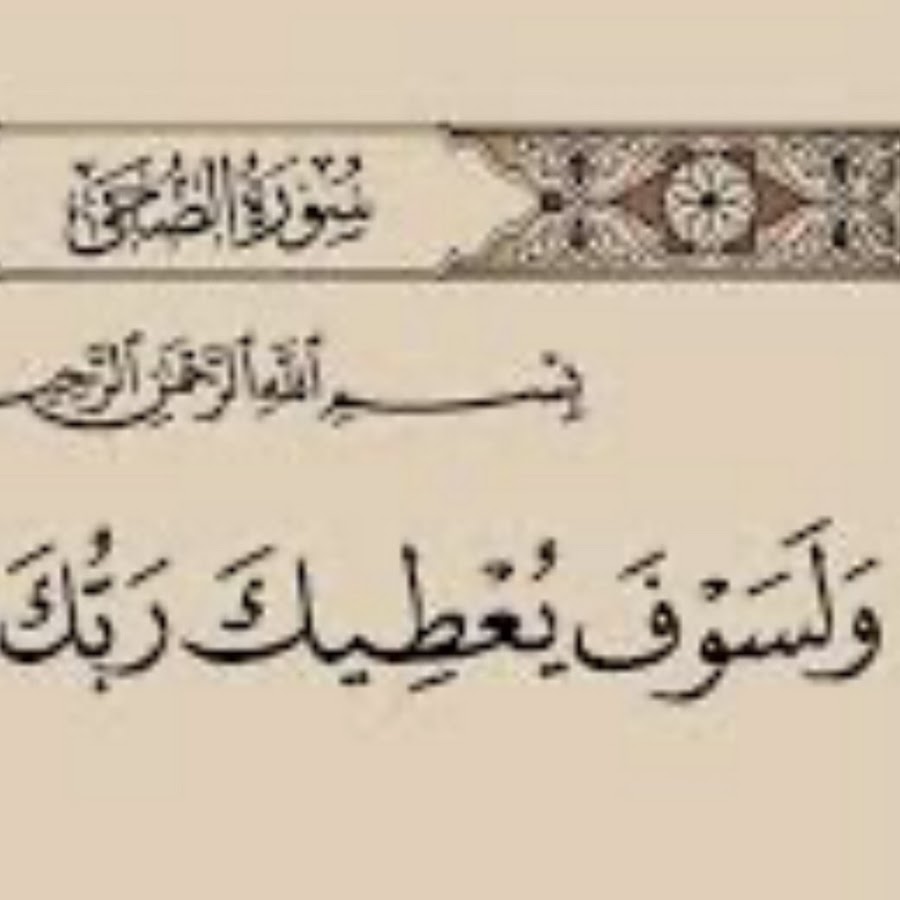 سُورَةُ الضُّحَىٰ
بِسْمِ ٱللَّهِ ٱلرَّحْمَٰنِ ٱلرَّحِيمِ
وَلَسَوْفَ يُعْطِيكَ رَبُّكَ